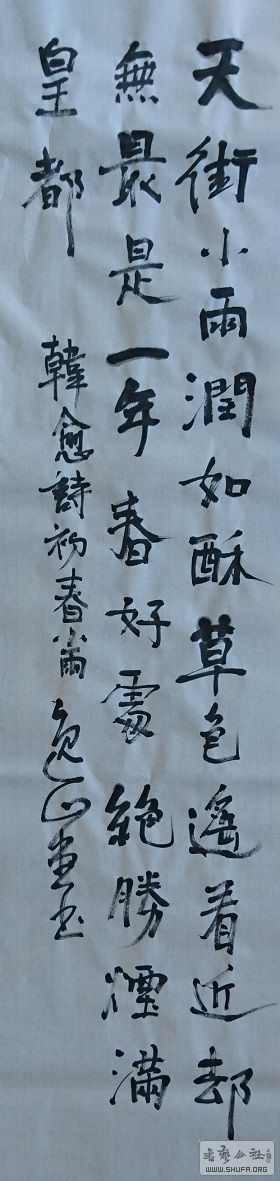 天街小雨潤如酥草色遙看近却
無最是一年春好處絕勝煙滿
皇都
韓愈詩初春小雨 逸山
書藝公社
WWW.SHUFA.ORG